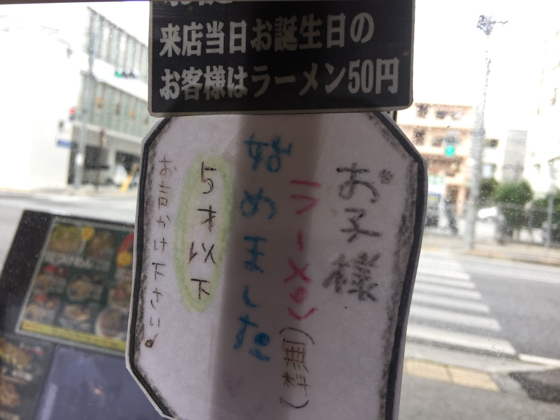 来店当日お誕生日の
お客様はラーメン50円
お子様
ラーメン(無料)
始めました
5才以下
お声かけ下さい。